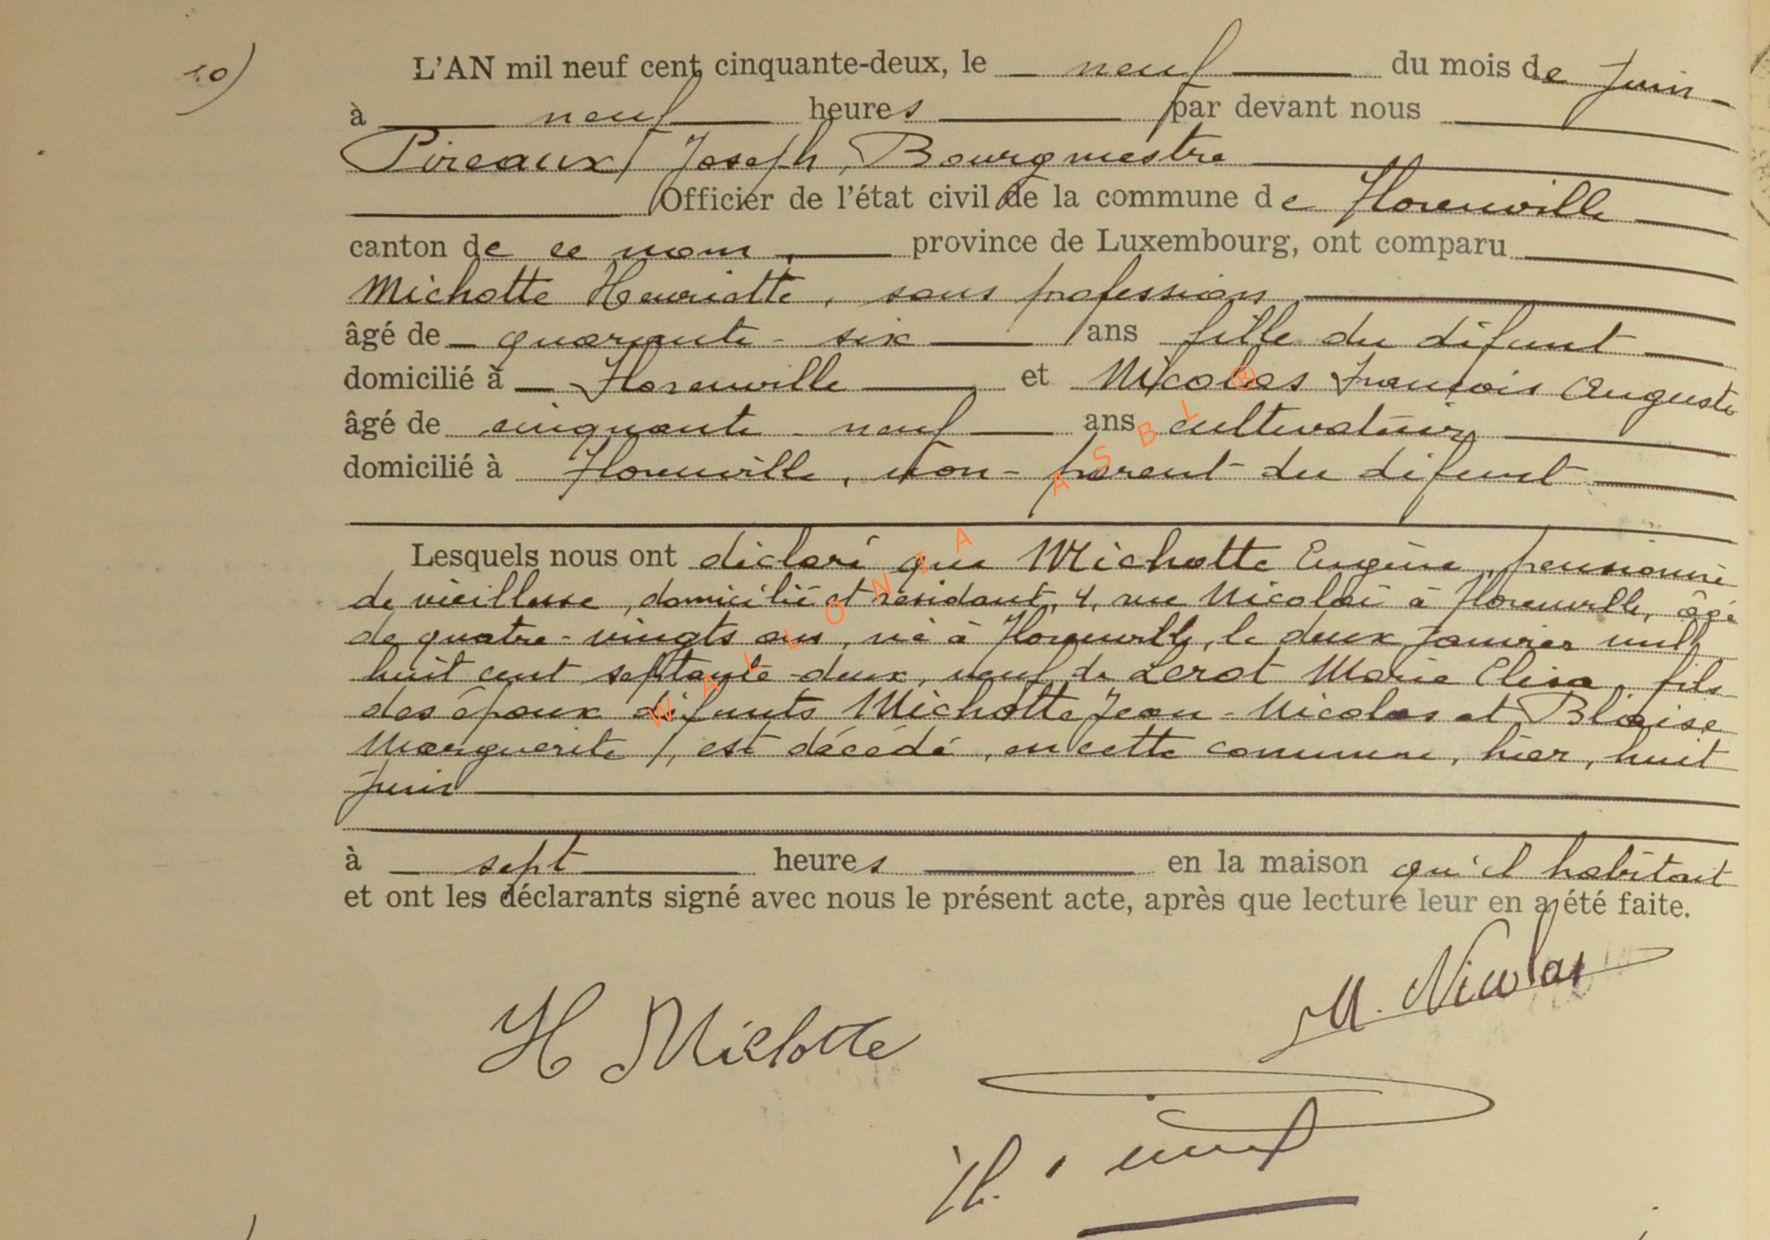 10)
L'AN mil neuf cent cinquante-deux, le neuf du mois de juin
à neuf heures par devant nous
Pireaux, Joseph, Bourgmestre
Officier de l'état civil de la commune de Florenville
canton de ce nom, province de Luxembourg, ont comparu
Michotte Henriette, sans profession
âgé de quarante-six ans fille du défunt
domicilié à Florenville et Nicolas François Auguste
âgé de cinquante-neuf ans cultivateur
domicilié à Florenville, non-parent du défunt
Lesquels nous ont déclaré que Michotte Eugène, pensionné
de vieillesse, domicilié et résidant, 4, rue Nicolaï à Florenville, âgé
de quatre-vingts ans, né à Florenville, le deux janvier mil
huit cent septante-deux, veuf de Lerot Marie Elisa, fils
des époux défunts Michotte Jean-Nicolas et Blaise
Marguerite, est décédé, en cette commune, hier, huit
juin
à sept heures en la maison qu'il habitait
et ont les déclarants signé avec nous le présent acte, après que lecture leur en a été faite.
H Michotte
M. Nicolas
WALLONIA ASBL ®